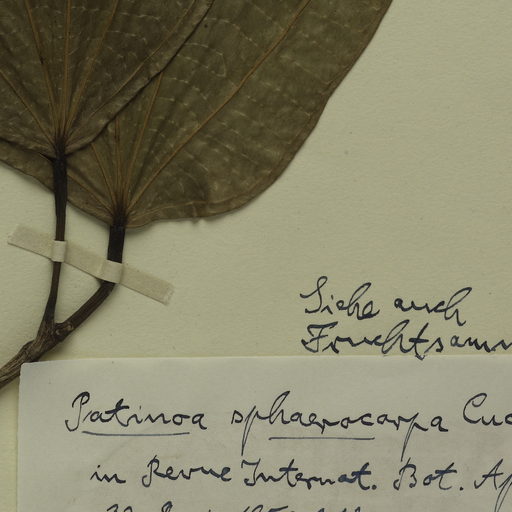 Siehe auch
Fruchtsamm
Patinoa sphaerocarpa Cuc
in Revue Internat. Bot. Ap